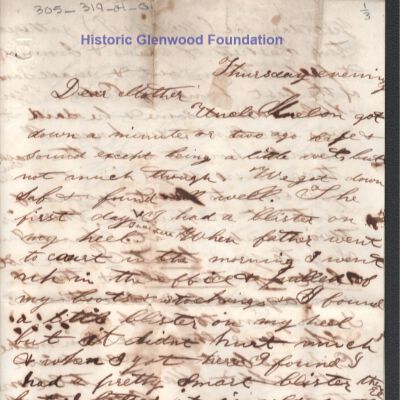 305_319_H_01
1/3
Historic Glenwood Foundation
Thursday evening
Dear Mother
Uncle Nelson got
down a minute or two ago safe &
sound except being a little wet but
not much though We got down
saf & found all well. The
first day I had a blister on
my heel because When father went
to court in the morning I went
up in the office & pulled of
my boots & stockings & I found
a little blister on my heel
but it didnt hurt much
& when I got here I found I
had a pretty smart blister